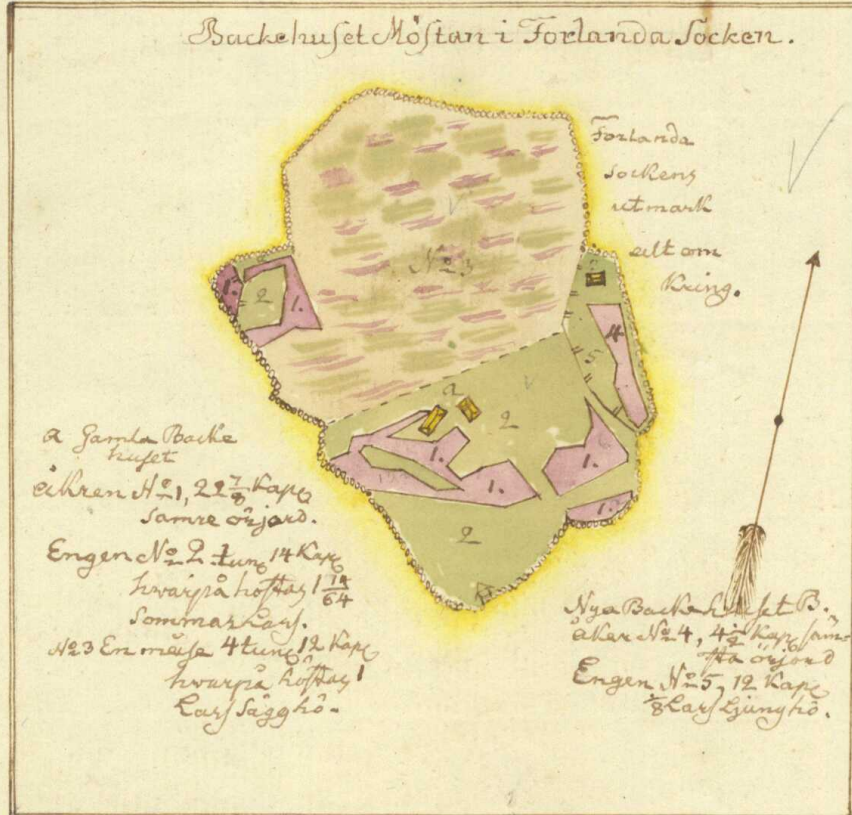 Backehuset Möstan i Forlanda Socken.
Forlanda
sockens
utmark
alt om
kring.
No 3
2
1.
2
1.
2
4
5
a
2
1.
1.
1.
1.
2
a Gamla Backe
huset
åkren No 1, 22 7/8 Kap
samre örjord.
Engen No 2 1 tun 14 Kap
hwarpå höstas 1 14/64
Sommarlass.
No 3 En måse 4 tun 12 Kap
hwarpå höstas 1
Lass Sägghö.
Nya Backehuset B.
åker No 4, 4 1/2 Kap säm-
sta örjord
Engen No 5, 12 Kap
1/8 Lass Ljunghö.